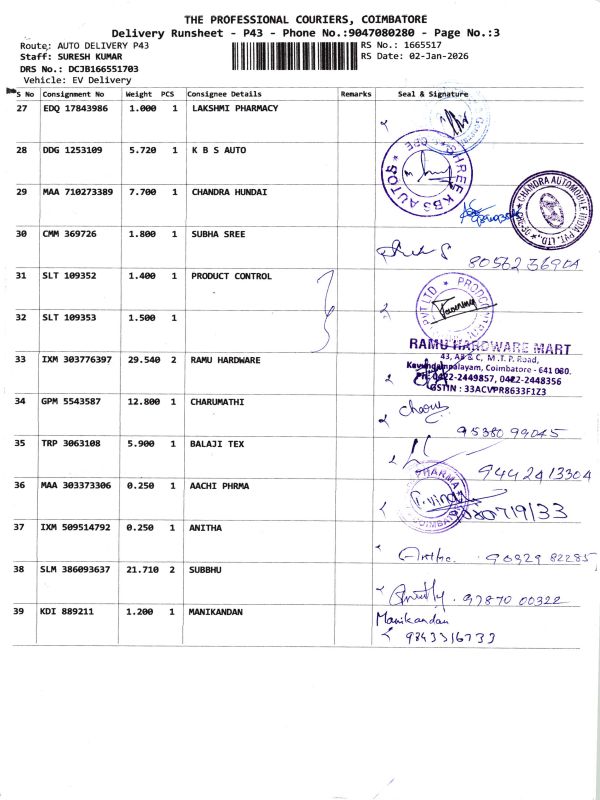 THE PROFESSIONAL COURIERS, COIMBATORE
Delivery Runsheet - P43 - Phone No.:9047080280 - Page No.:3
Route: AUTO DELIVERY P43
RS No.: 1665517
Staff: SURESH KUMAR
RS Date: 02-Jan-2026
DRS No.: DCJB166551703
Vehicle: EV Delivery
S No Consignment No Weight PCS Consignee Details Remarks Seal & Signature
27 EDQ 17843986 1.000 1 LAKSHMI PHARMACY
28 DDG 1253109 5.720 1 K B S AUTO
SHREE KBS AUTOS * CBE *
29 MAA 710273389 7.700 1 CHANDRA HUNDAI
CHANDRA AUTOMOBILE INDIA PVT. LTD.,
30 CMM 369726 1.800 1 SUBHA SREE
31 SLT 109352 1.400 1 PRODUCT CONTROL
32 SLT 109353 1.500 1
RAMU HARDWARE MART
43, AB & C, M.T.P. Road,
Kavundampalayam, Coimbatore - 641 030.
PH: 0422-2449857, 0422-2448356
GSTIN : 33ACVPR8633F1Z3
33 IXM 303776397 29.540 2 RAMU HARDWARE
34 GPM 5543587 12.800 1 CHARUMATHI
9538099045
35 TRP 3063108 5.900 1 BALAJI TEX
9442413304
36 MAA 303373306 0.250 1 AACHI PHRMA
PHARMA
COIMBATORE
37 IXM 509514792 0.250 1 ANITHA
90329 82285
38 SLM 386093637 21.710 2 SUBBHU
97870 00322
39 KDI 889211 1.200 1 MANIKANDAN
Manikandan
9843316733